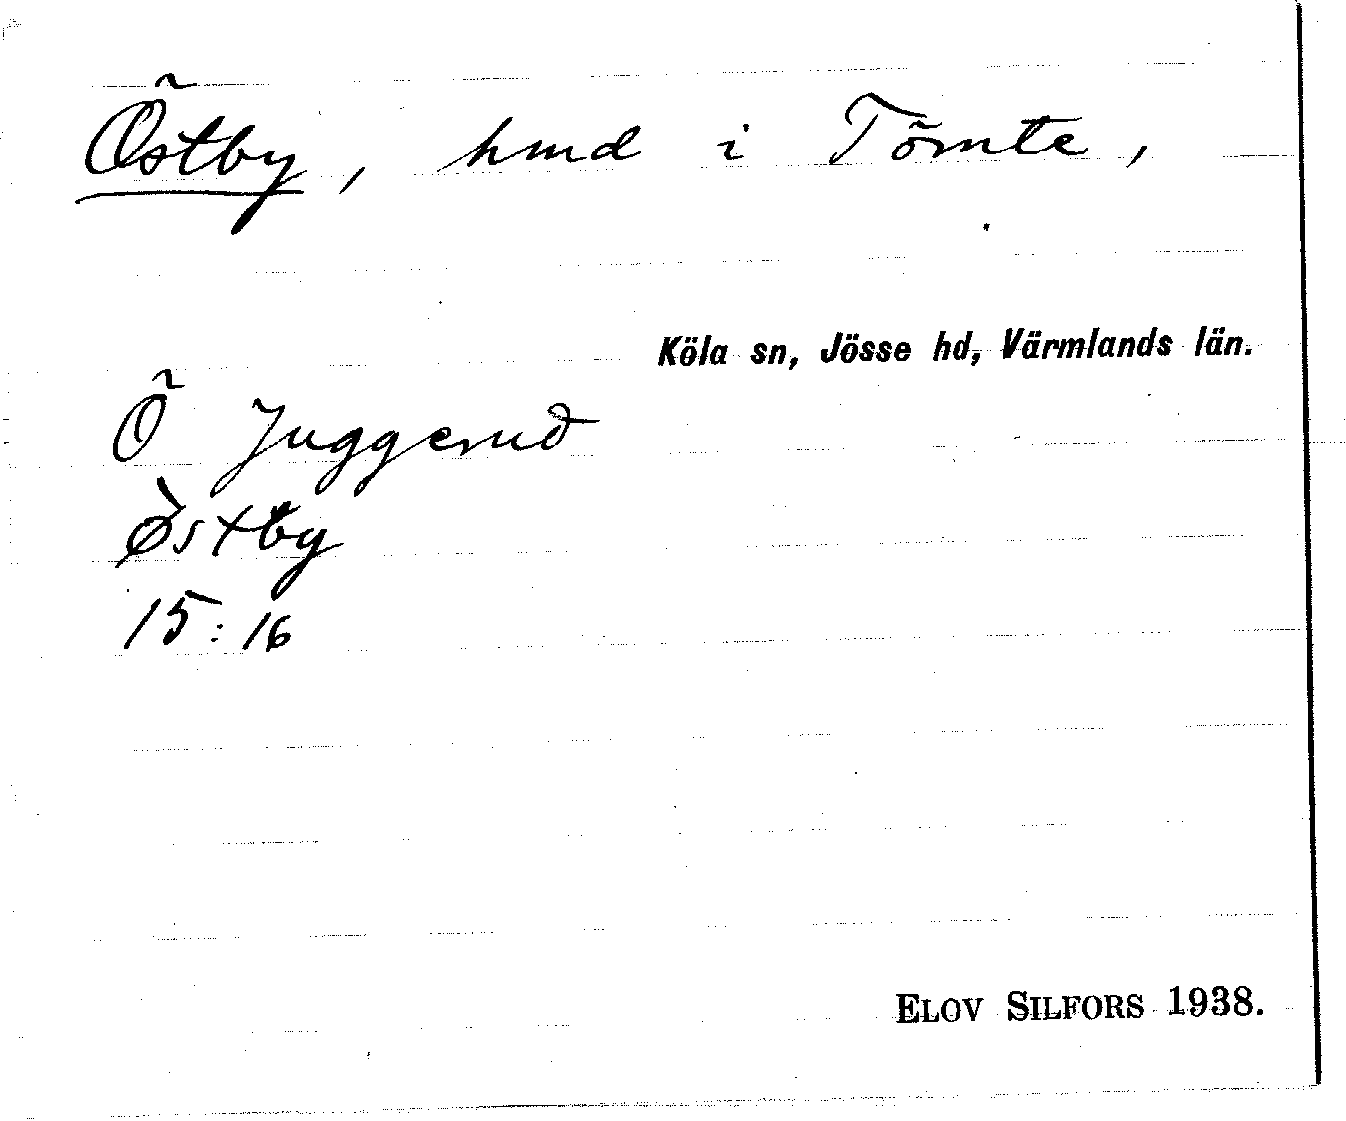 Östby, hmd i Tömte,
Köla sn, Jösse hd, Värmlands län.
Ö Juggerud
Östby
15:16
ELOV SILFORS 1938.